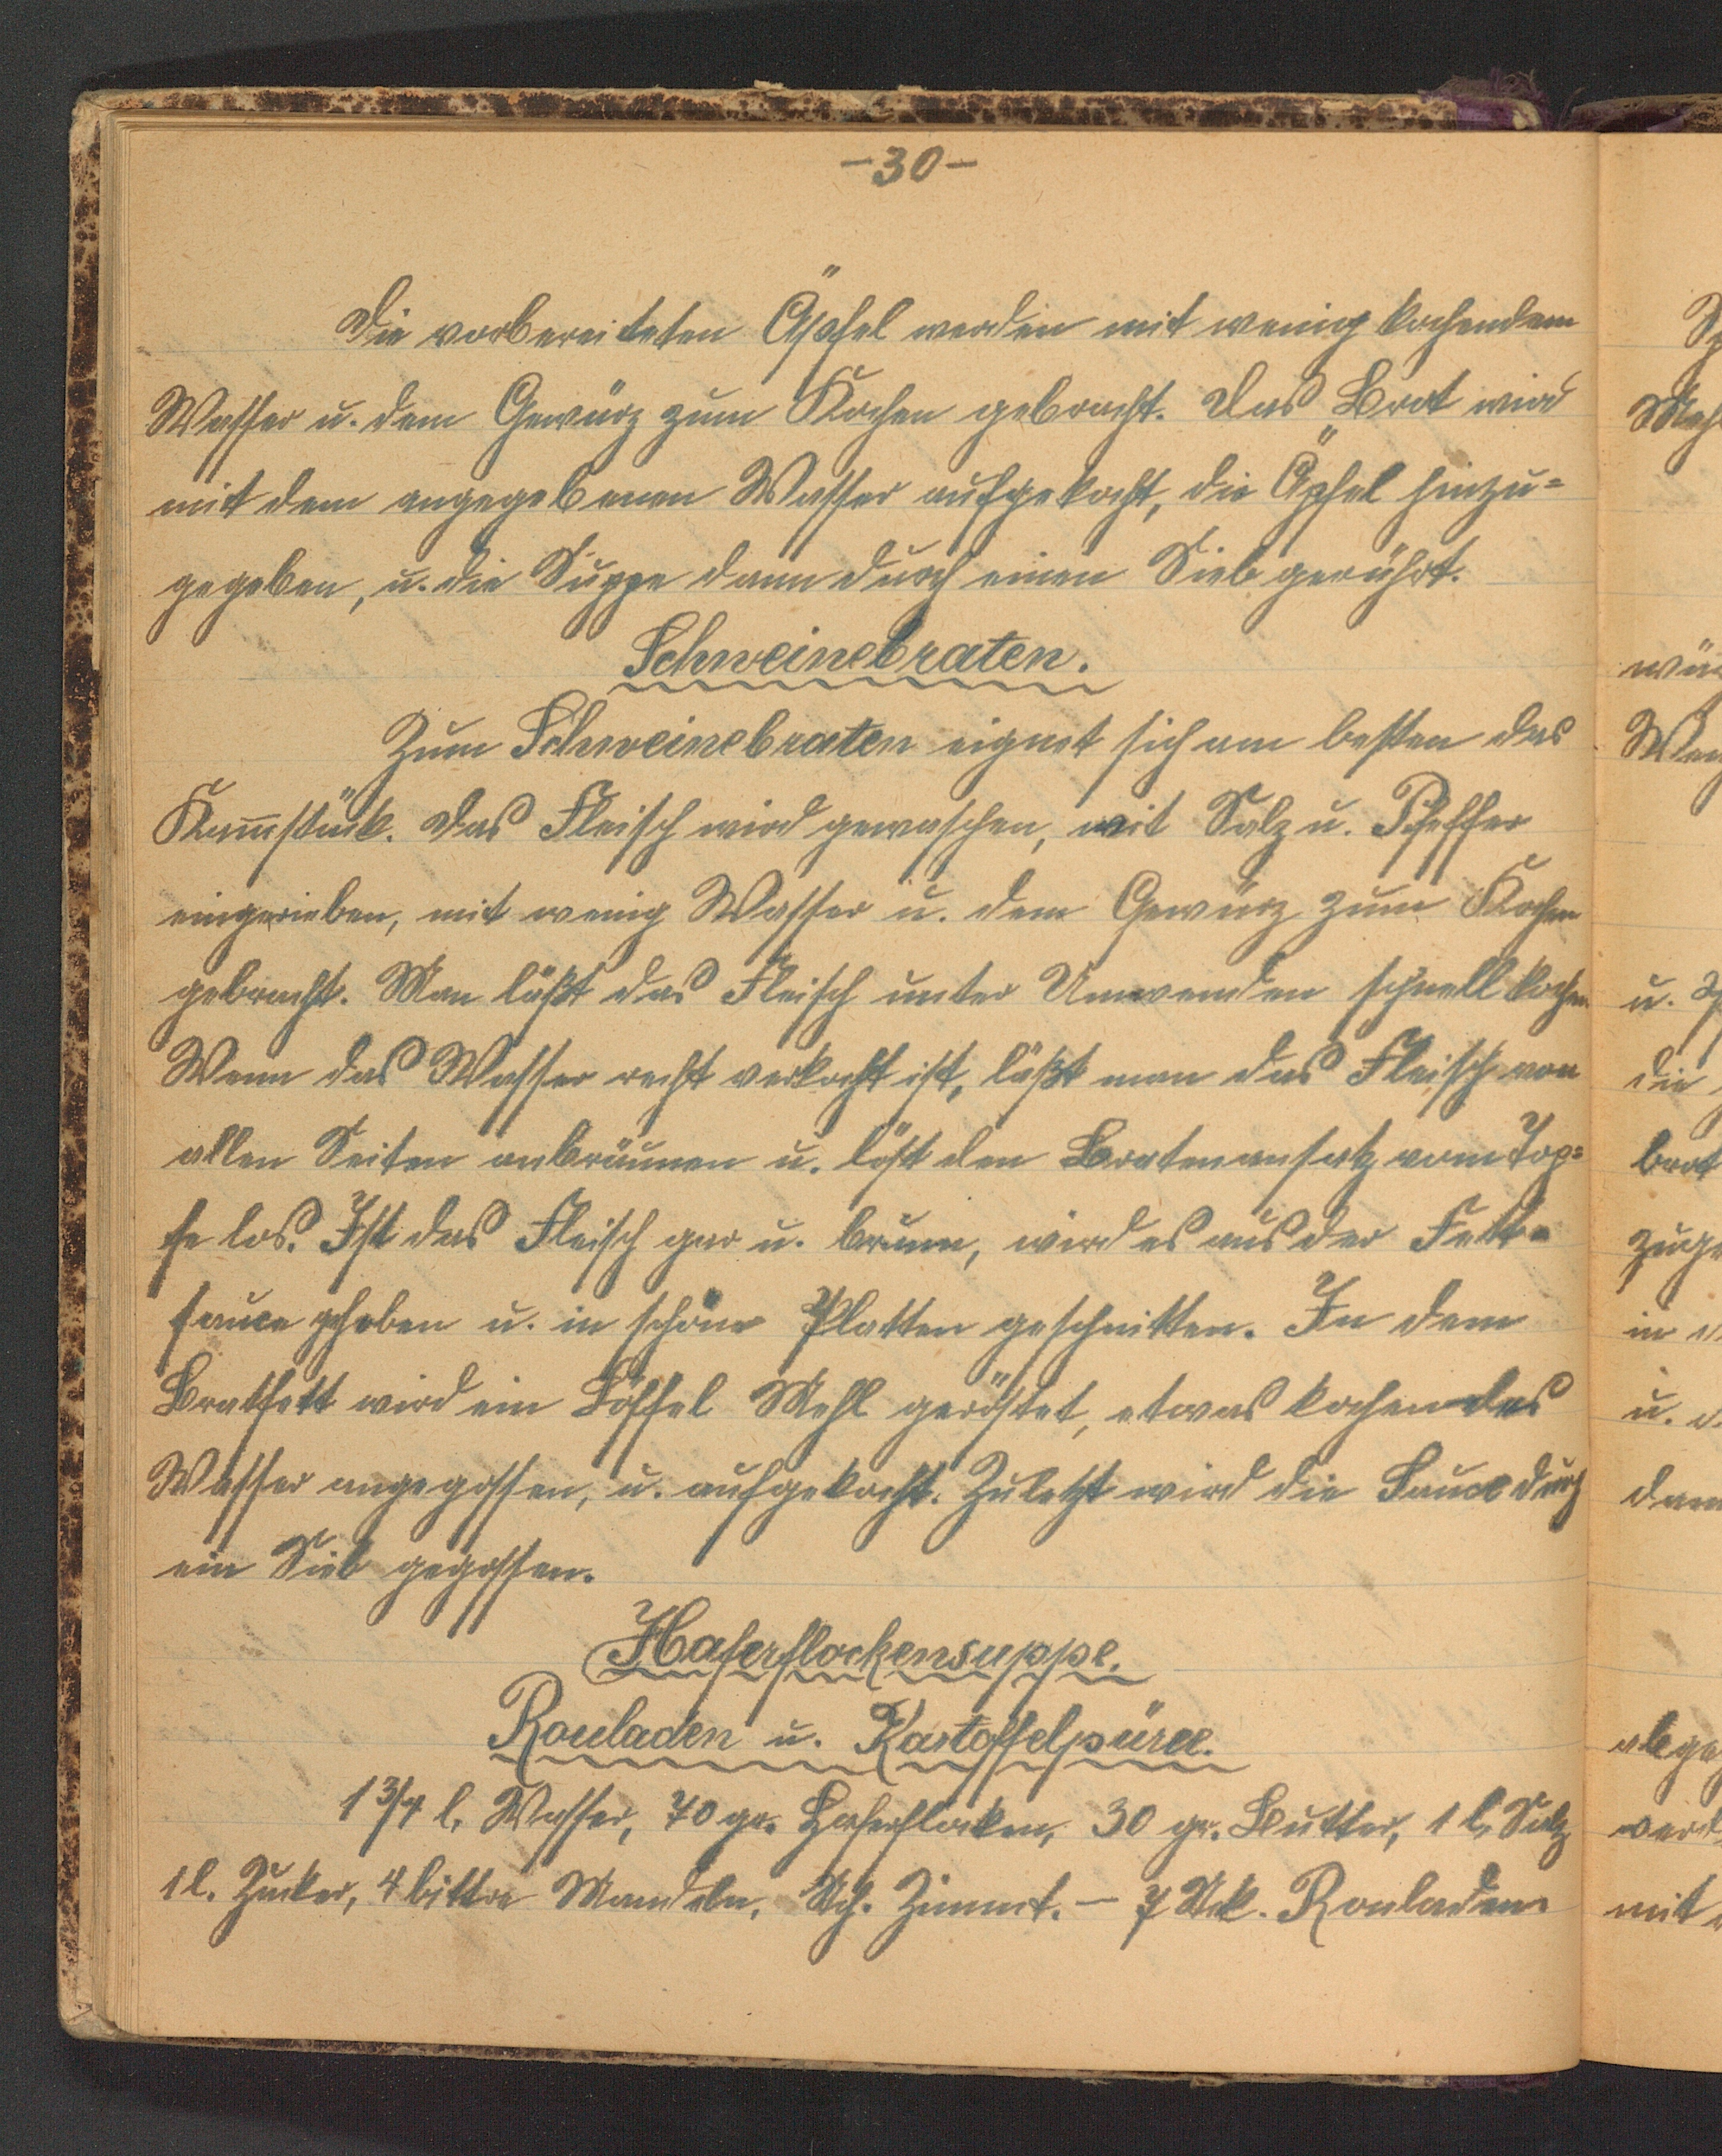 -30-
Die vorbereiteten Äpfel werden mit wenig kochendem
Wasser u. dem Gewürz zum Kochen gebracht. Das Brot wird
mit dem angegebenen Wasser aufgekocht, die Äpfel hinzu=
gegeben, u. die Suppe dann durch einen Sieb gerührt.
Schweinebraten.
Zum Schweinebraten eignet sich am besten das
Kammstück. Das Fleisch wird gewaschen, mit Salz u. Pfeffer
eingerieben, mit wenig Wasser u. dem Gewürz zum Kochen
gebracht. Man läßt das Fleisch unter Umwenden schnell kochen.
Wenn das Wasser recht verkocht ist, läßt man das Fleisch von
allen Seiten anbräunen u. löst den Bratenansatz vom Top=
fe los. Ist das Fleisch gar u. braun, wird es aus der Fett=
sauce gehoben u. in schöne Platten geschnitten. In dem
Bratfett wird ein Löffel Mehl geröstet, etwas kochendes
Wasser angegossen, u. aufgekocht. Zuletzt wird die Sauce durch
ein Sieb gegossen.
Haferflockensuppe.
Rouladen u. Kartoffelpüree.
1 3/4 l. Wasser, 70 gr. Haferflocken, 30 gr. Butter, 1 l. Salz
1 l. Zucker, 4 bittre Mandeln, Zimmt. - 7 Rouladen.